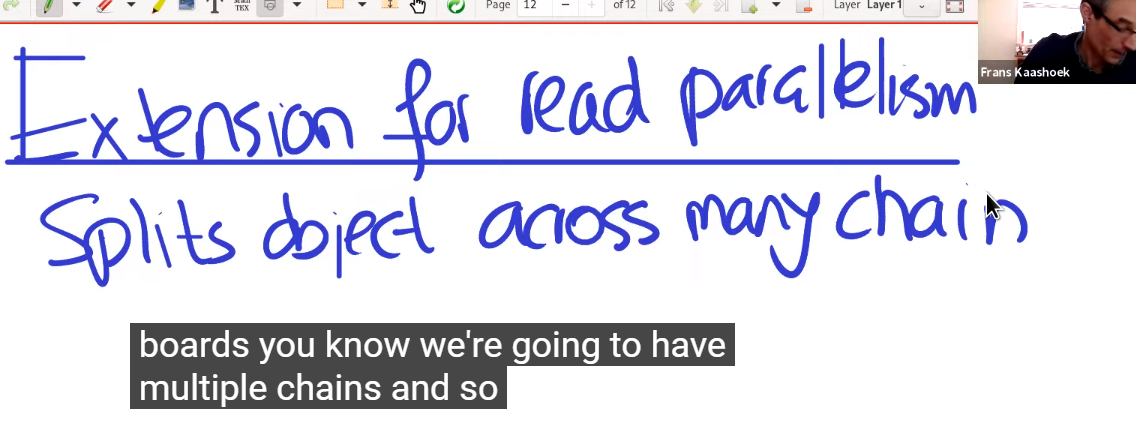 Math
TEX
Page 12 of 12 Layer Layer 1
Frans Kaashoek
Extension for read parallelism
Splits object across many chain
boards you know we're going to have
multiple chains and so